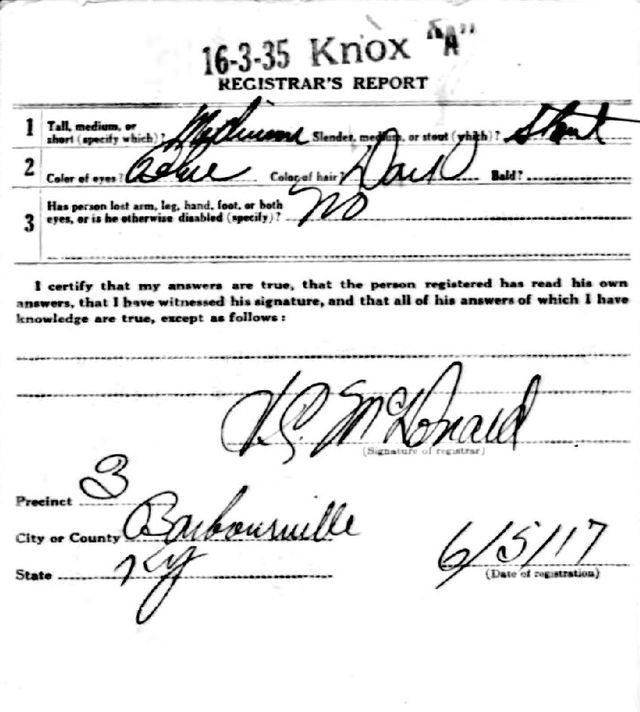 16-3-35 Knox "A"
REGISTRAR'S REPORT
1 Tall, medium, or short (specify which)? Medium Slender, medium, or stout (which)? Stout
2 Color of eyes? Blue Color of hair? Dark Bald?
3 Has person lost arm, leg, hand, foot, or both eyes, or is he otherwise disabled (specify)? No
I certify that my answers are true, that the person registered has read his own
answers, that I have witnessed his signature, and that all of his answers of which I have
knowledge are true, except as follows:
McDonald
(Signature of registrar)
Precinct 3
City or County Barbourville
State Ky
6/5/17
(Date of registration)